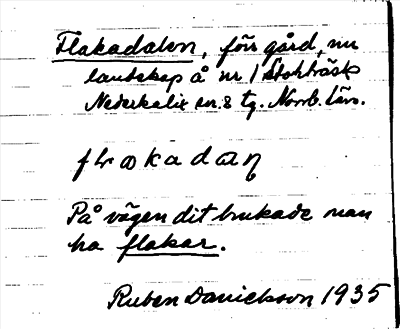 Flakadalen, förr gård, nu
landskap å nr 1 Stockträsk
Nederkalix sn. & tg. Norrb. län.
På vägen dit brukade man
ha flakar.
Ruben Danielsson 1935